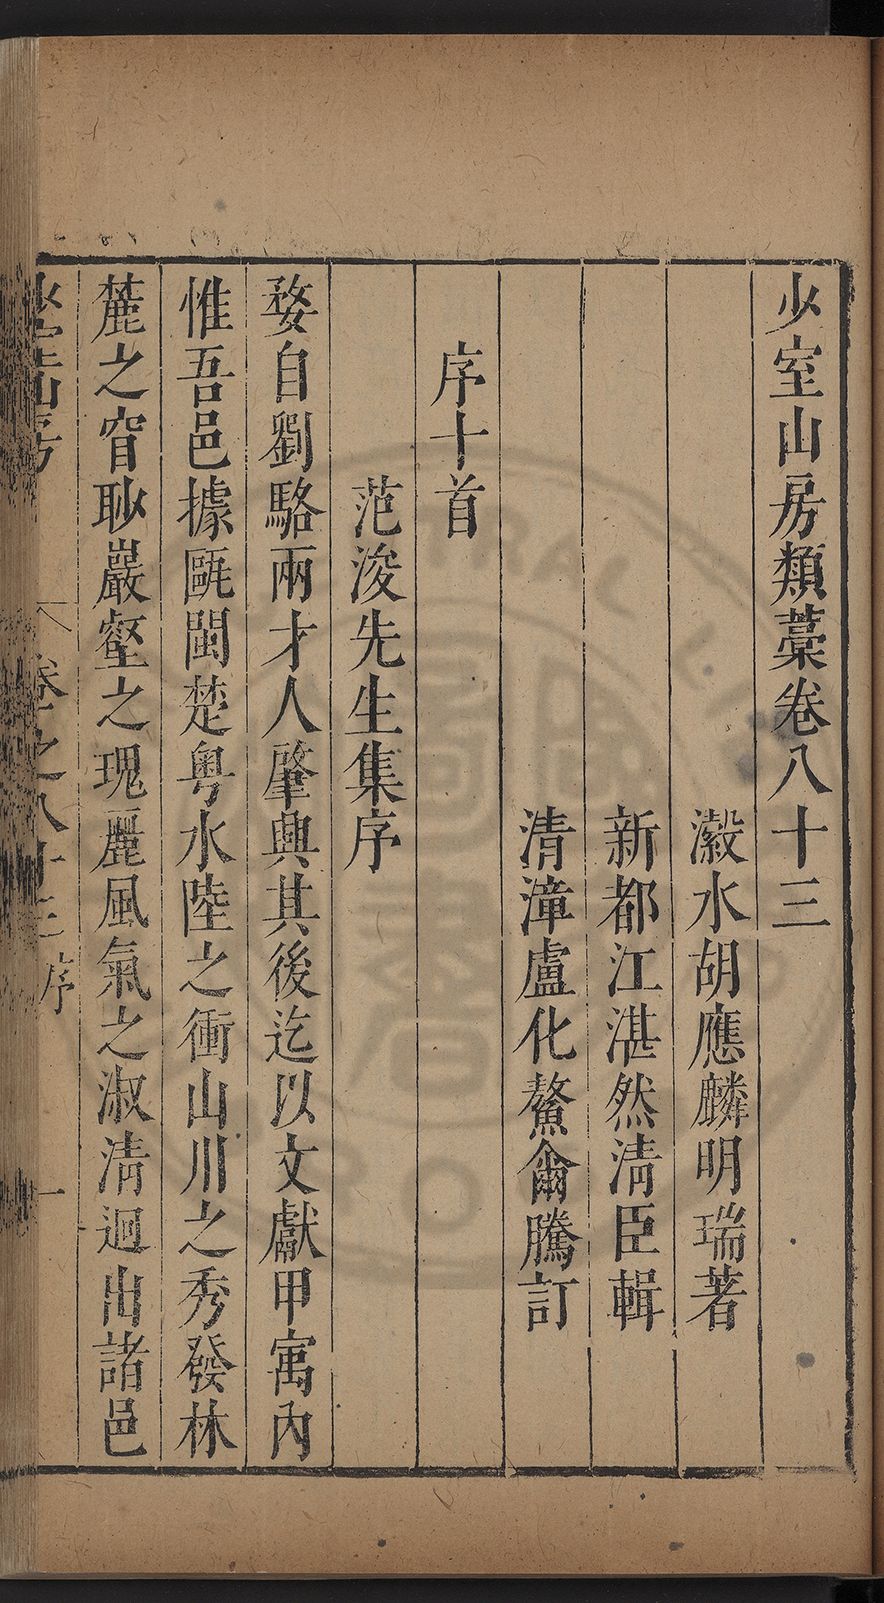 少室山房類藁卷八十三
瀫水胡應麟明瑞著
新都江湛然清臣輯
清漳盧化鰲爾騰訂
序十首
范浚先生集序
婺自劉駱兩才人肇興其後迄以文獻甲寓內
惟吾邑據甌閩楚粵水陸之衝山川之秀發林
麓之窅眇巖壑之瑰麗風氣之淑清迥出諸邑
少室山房 卷之八十三 序 一